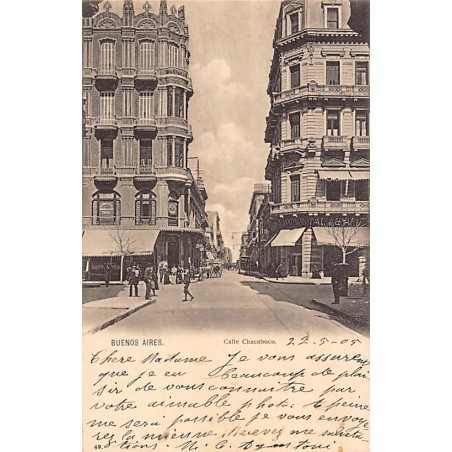 BUENOS AIRES.
Calle Chacabuco. 22-5-05
Chere Madame Je vous assure
que je eu beaucoup de plai
sir de vous connaitre par
votre aimable photo. E peine
me sera possible je vous envoye
rez la mienne. Recevez me saluta
tions. M. E.